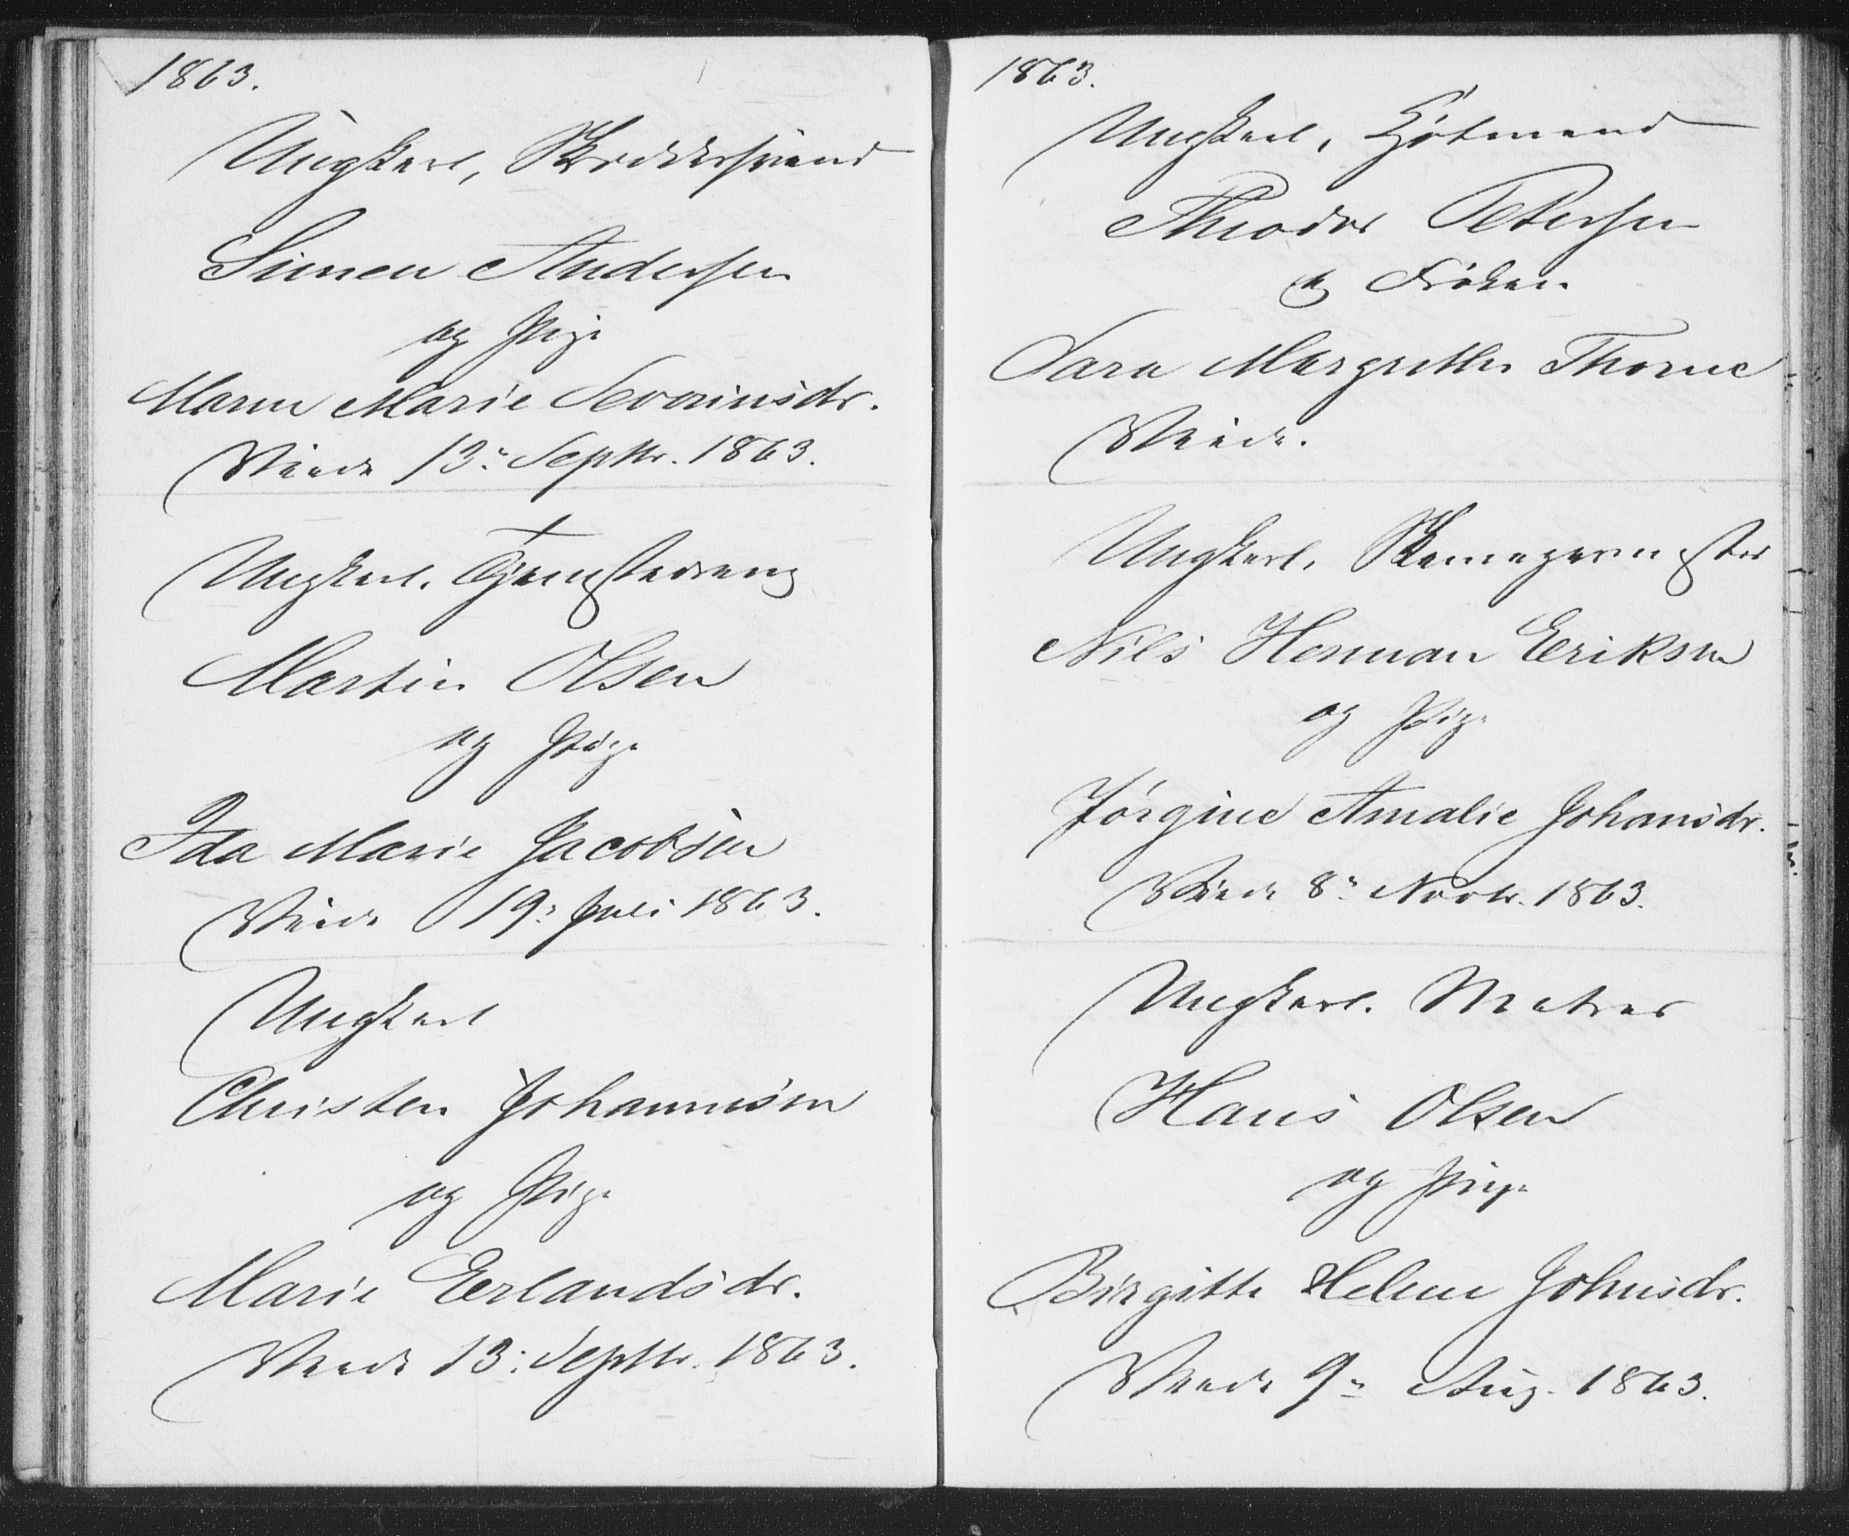 1863.
Ungkarl, Skreddersvend
Simen Andersen
og Pige
Maren Marie Severinsdr.
Viede 13: Septbr. 1863.
Ungkarl. Tjenestedreng
Martin Olsen
og Pige
Ida Marie Jacobsen
Viede 19: Juli 1863.
Ungkarl
Christen Johannesen
og Pige
Marie Eerlandsdr.
Viede 13: Septbr. 1863.
1863.
Ungkarl,
Theodor Petersen
og Frøken
Sara Margrethe Thorne
Viede.
Ungkarl, Skomagermester
Nils Herman Eeriksen
og Pige
Jørgine Amalie Johansdr.
Viede 8: Novbr. 1863.
Ungkarl. Matros
Hans Olsen
og Pige
Birgitte Helene Johnsdr.
Viede 9: Aug. 1863.